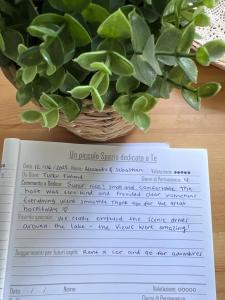 Un piccolo Spazio dedicato a Te
Data 12/06/2025 Nome Alexandra & Sebastian Valutazione
Da Dove Turku Finland Giorni di Permanenza 4
Commento e Dedica Super nice! Small and comfortable. The
host was very kind and provided clear instructions.
Everything went smoothly. Thank you for the great
hospitality
Ricordo speciale We really enjoyed the scenic drives
around the lake - the views were amazing!
Suggerimenti per futuri ospiti Rent a car and go for adventures
Data / / Nome Valutazione
Da Dove Giorni di Permanenza